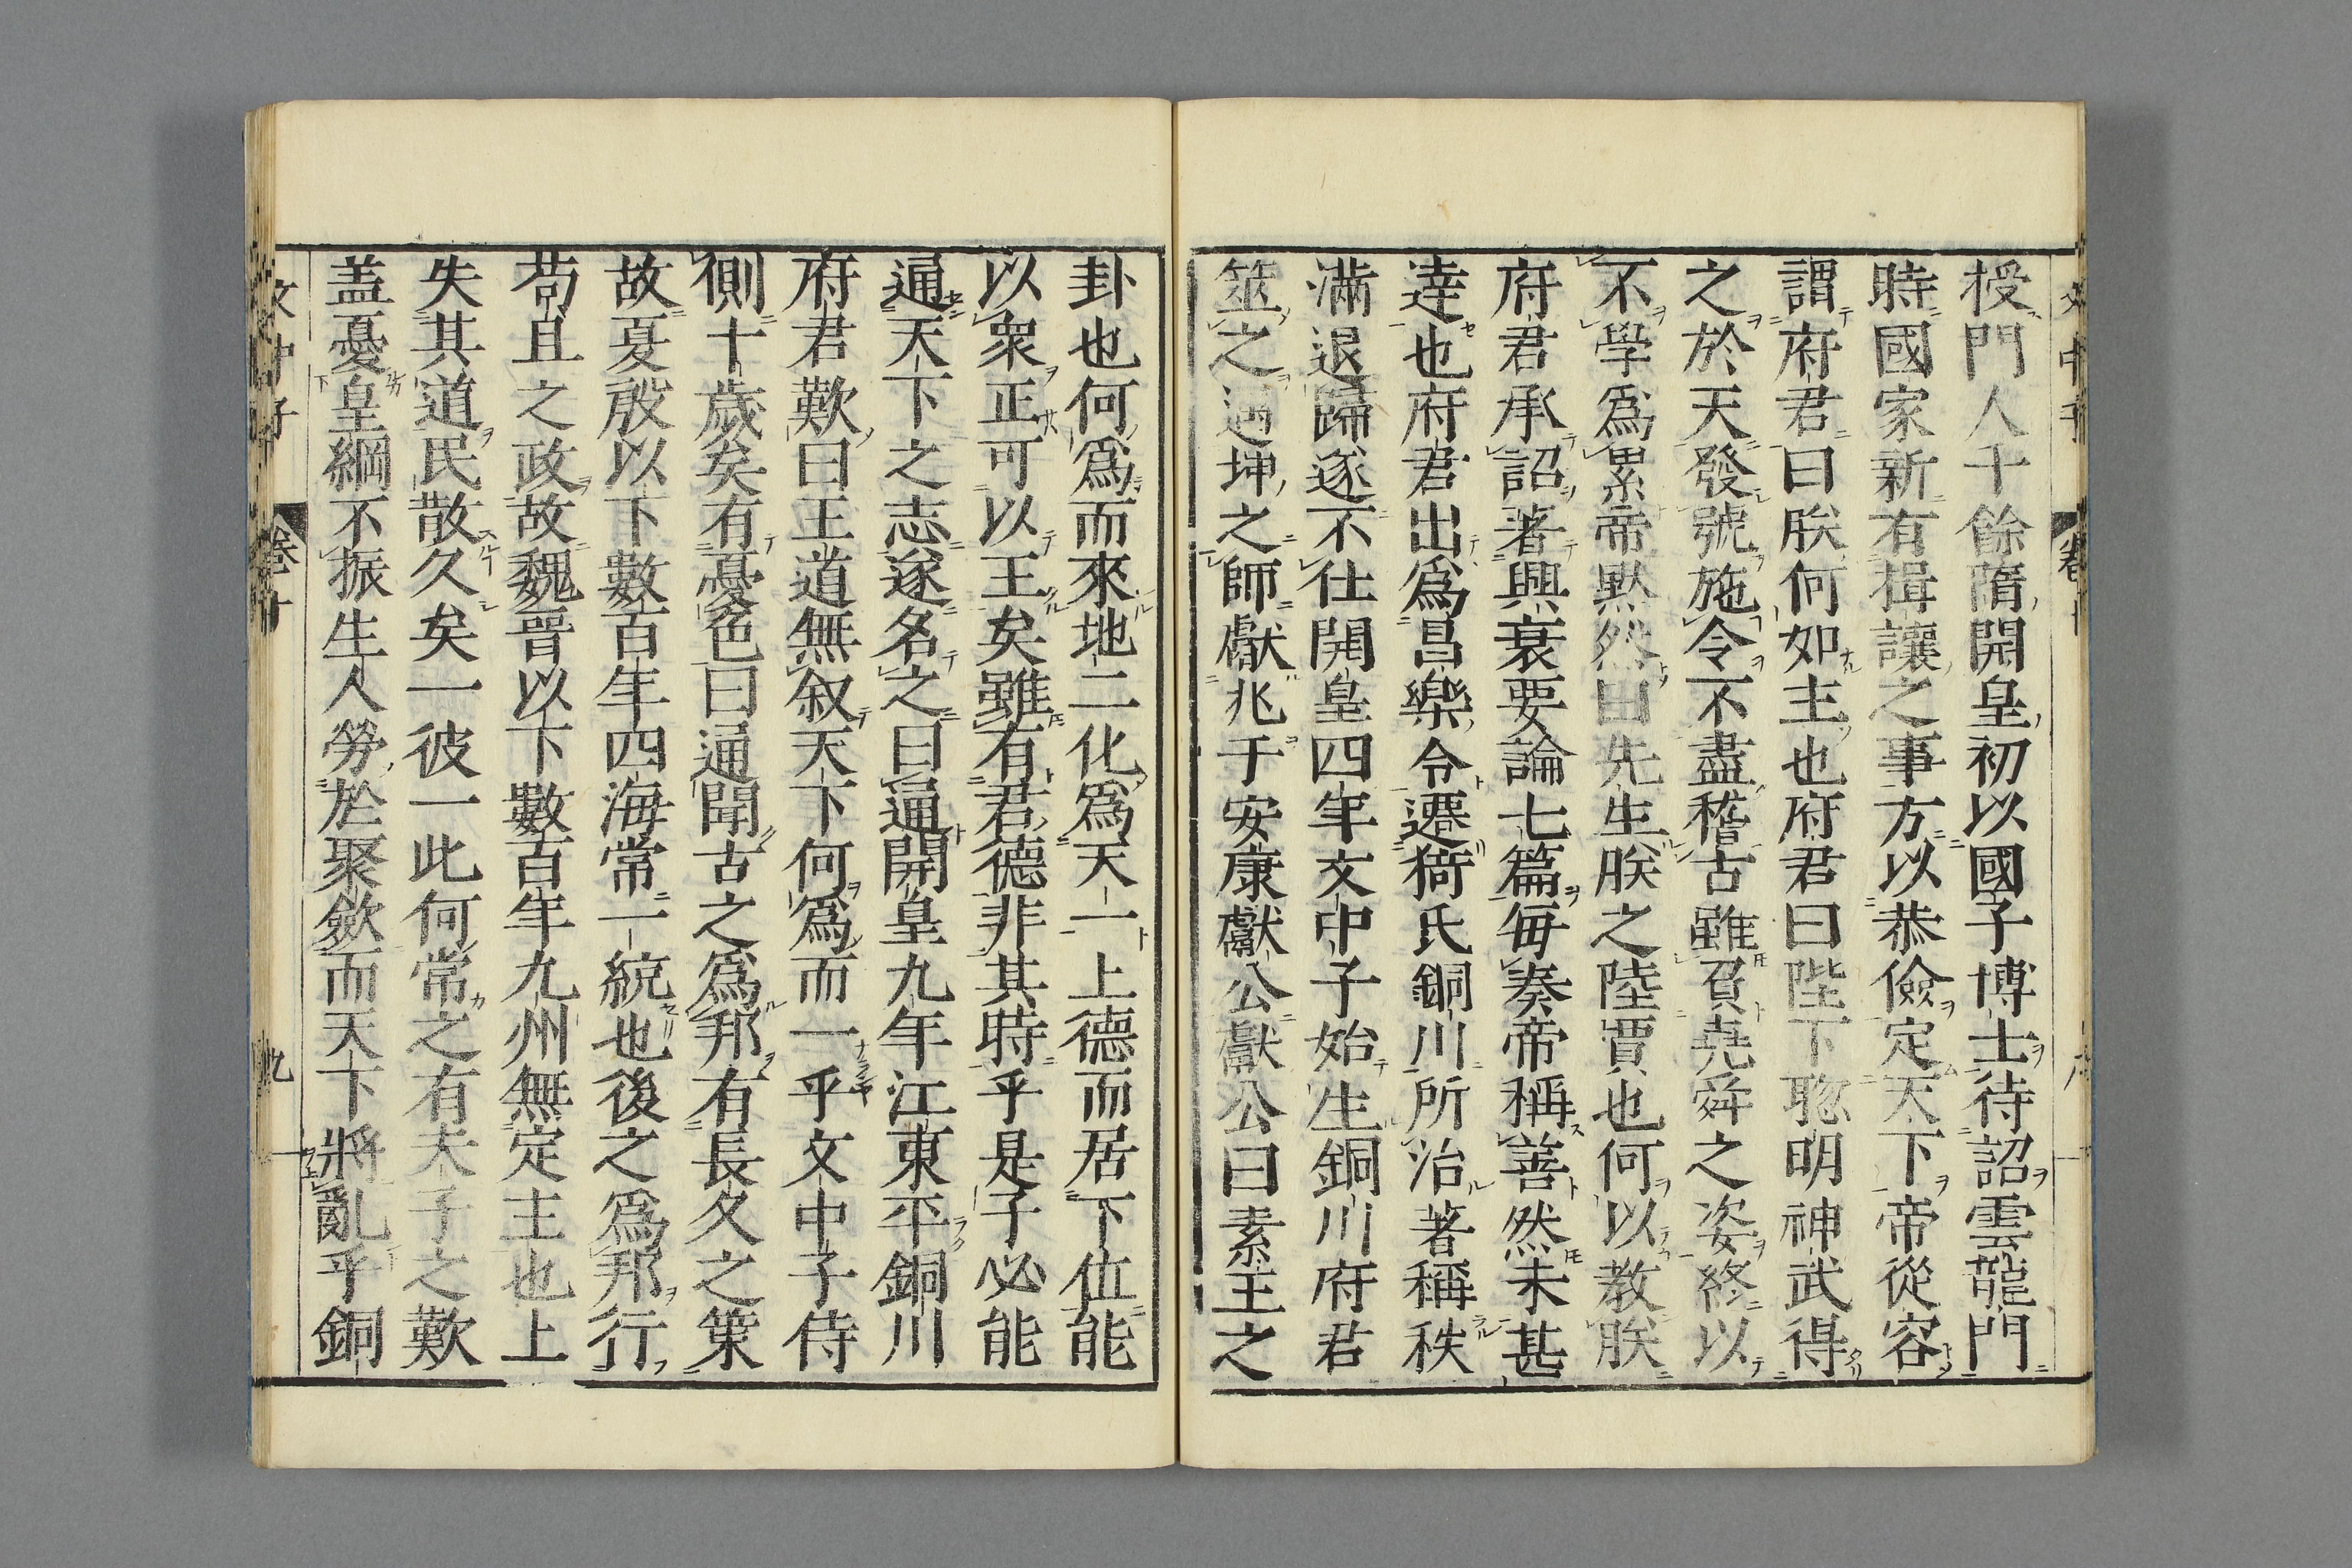 授門人千餘隋開皇初以國子博士待詔雲龍門
時國家新有揖讓之事方以恭儉定天下帝從容
謂府君曰朕何如主也府君曰陛下聡明神武得
之於天發號施令不盡稽古雖負堯舜之姿終以
不學爲累帝默然曰先生朕之陸賈也何以教朕
府君承詔著興衰要論七篇毎奏帝稱善然未甚
達也府君出爲昌樂令遷猗氏銅川所治著稱秩
滿退歸遂不仕開皇四年文中子始生銅川府君
筮之遇坤之師獻兆于安康獻公獻公曰素王之
卦也何爲而來地二化爲天一上德而居下位能
以衆正可以王矣雖有君德非其時乎是子必能
通天下之志遂名之曰通開皇九年江東平銅川
府君歎曰王道無叙天下何爲而一乎文中子侍
側十歳矣有憂色曰通聞古之爲邦有長久之策
故夏殷以下數百年四海常一統也後之爲邦行
苟且之政故魏晉以下數百年九州無定主也上
失其道民散久矣一彼一此何常之有夫子之歎
盖憂皇綱不振生人勞於聚斂而天下將亂乎銅
文中子 卷十 九